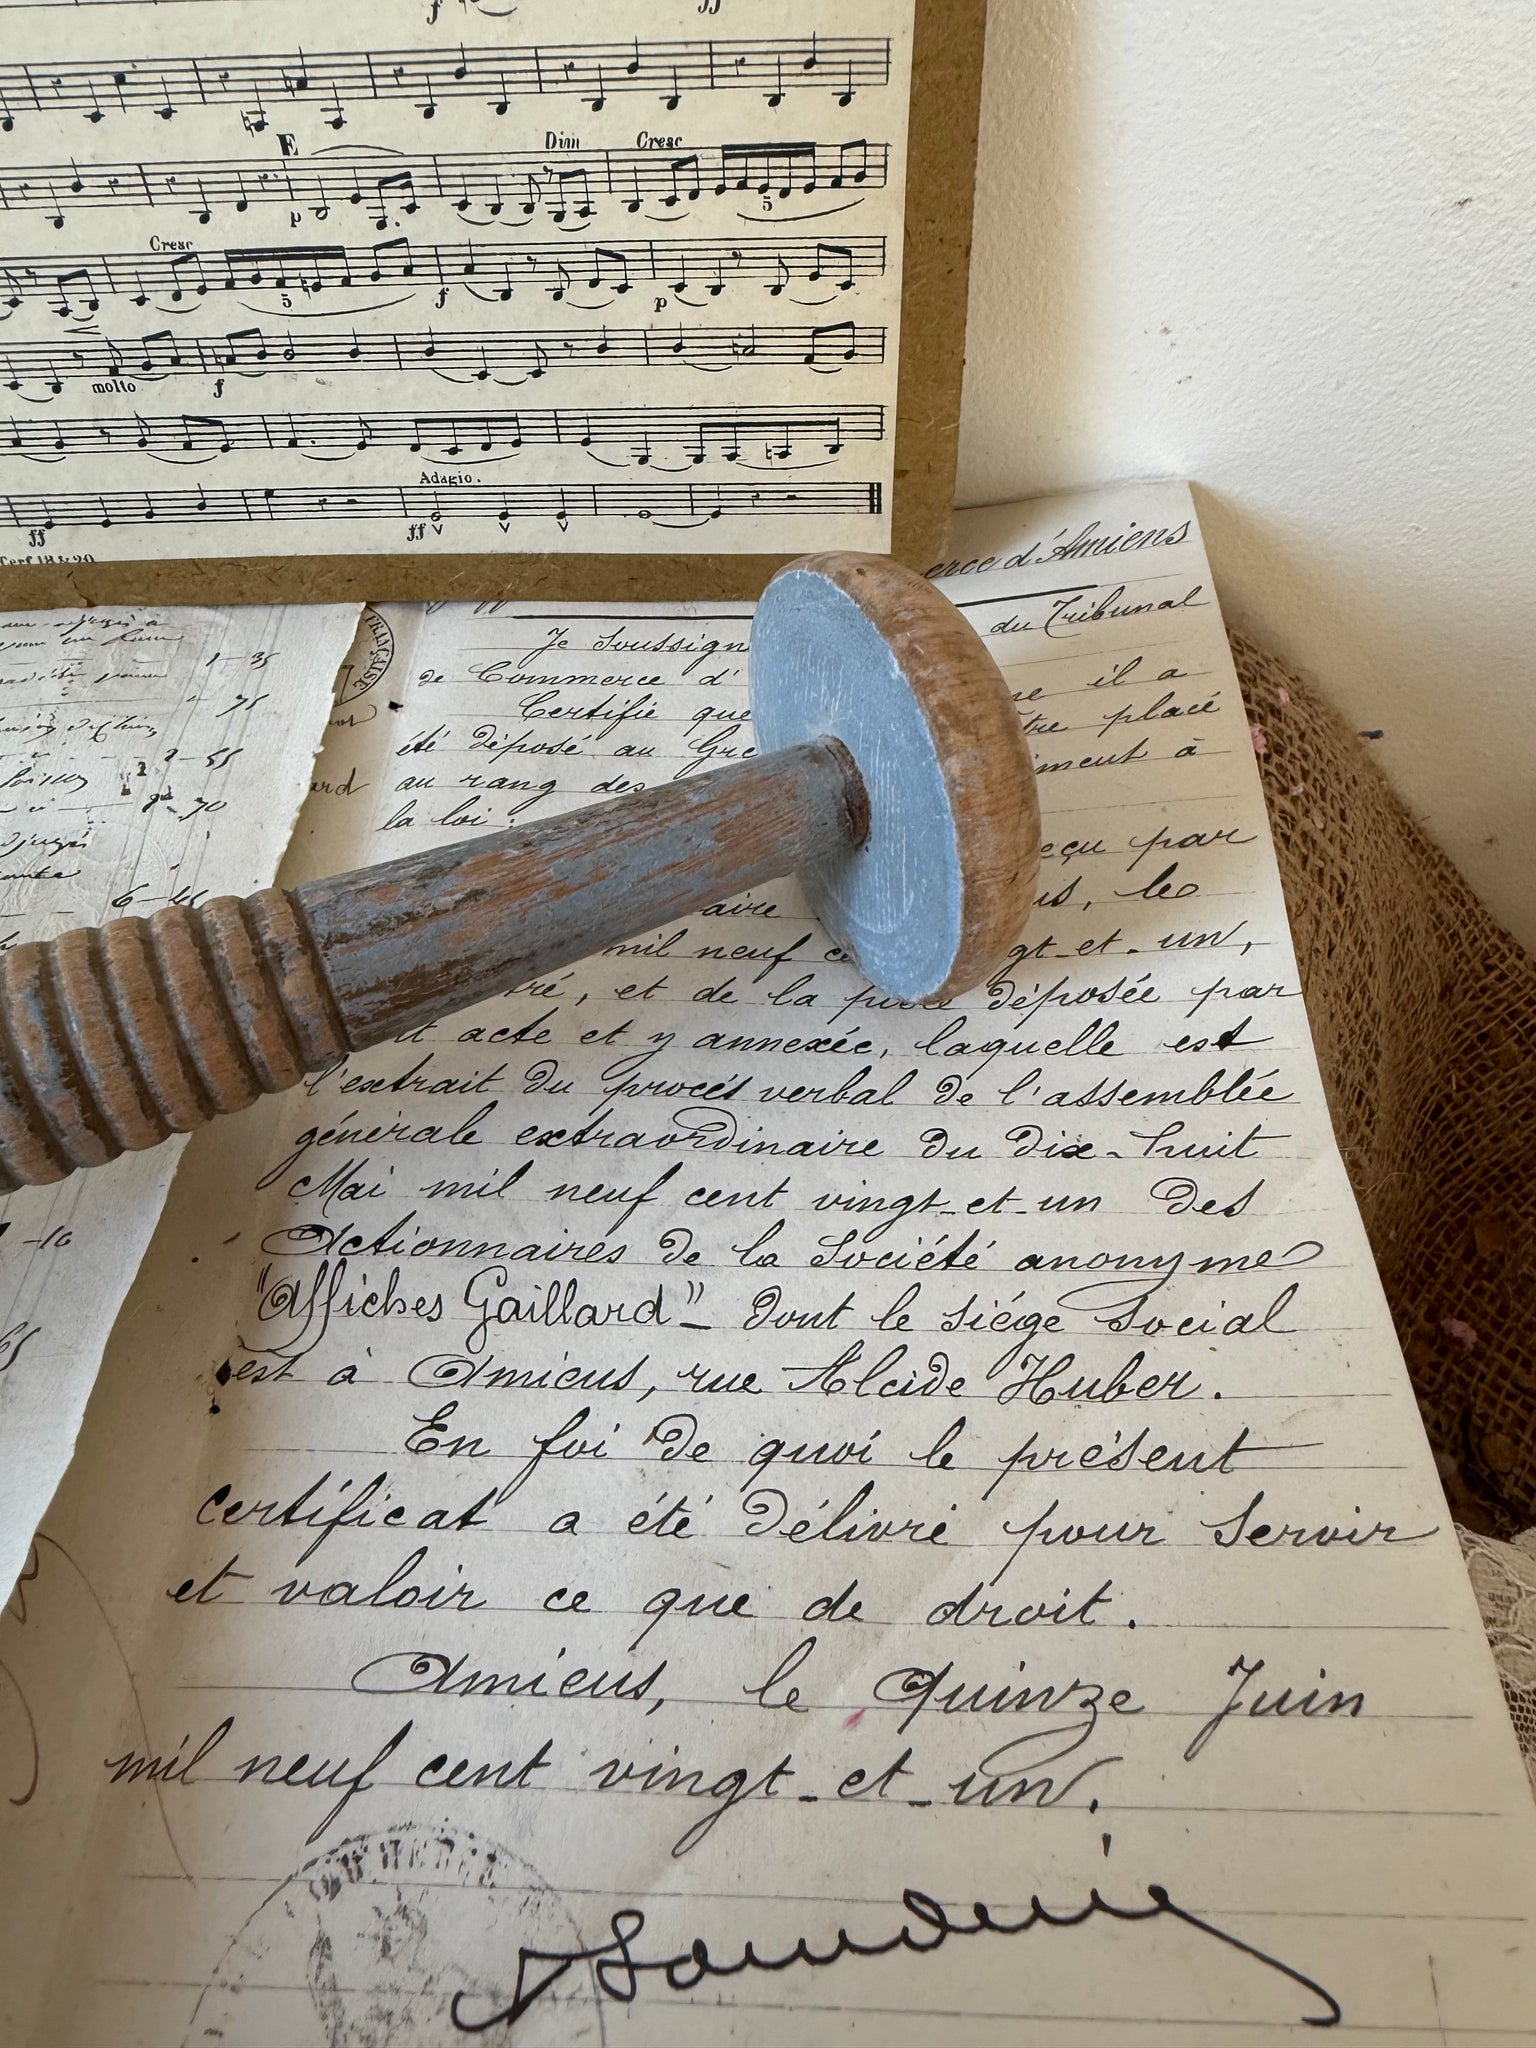 f ff
E Dim Cresc
p 5
Cresc
5 f p
molto f
Adagio.
ff ff
1-35
75
2-55
70
6-45
-10
65
FRANÇAISE
erce d'Amiens
Je Soussign du Tribunal
de Commerce d'
Certifie que il a
été déposé au Gre tre placé
au rang des iment à
la loi :
eçu par
aire is, le
mil neuf c gt-et-un,
tré, et de la déposée par
t acte et y annexée, laquelle est
l'extrait du procès verbal de l'assemblée
générale extraordinaire du dix-huit
Mai mil neuf cent vingt-et-un des
Actionnaires de la Société anonyme
"Affiches Gaillard" - dont le siége social
est à Amiens, rue Alcide Huber.
En foi de quoi le présent
certificat a été délivré pour servir
et valoir ce que de droit.
Amiens, le Quinze Juin
mil neuf cent vingt-et-un.